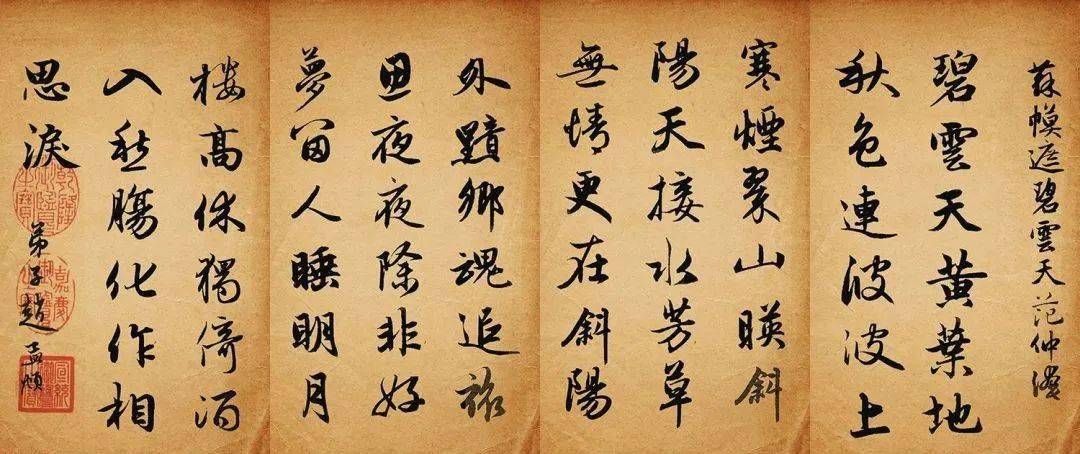 蘇幙遮碧雲天范仲淹
碧雲天黄葉地
秋色連波波上
寒煙翠山暎斜
陽天接水芳草
無情更在斜陽
外黯鄉魂追旅
思夜夜除非好
夢留人睡明月
樓高休獨倚酒
入愁腸化作相
思淚
弟子趙孟頫